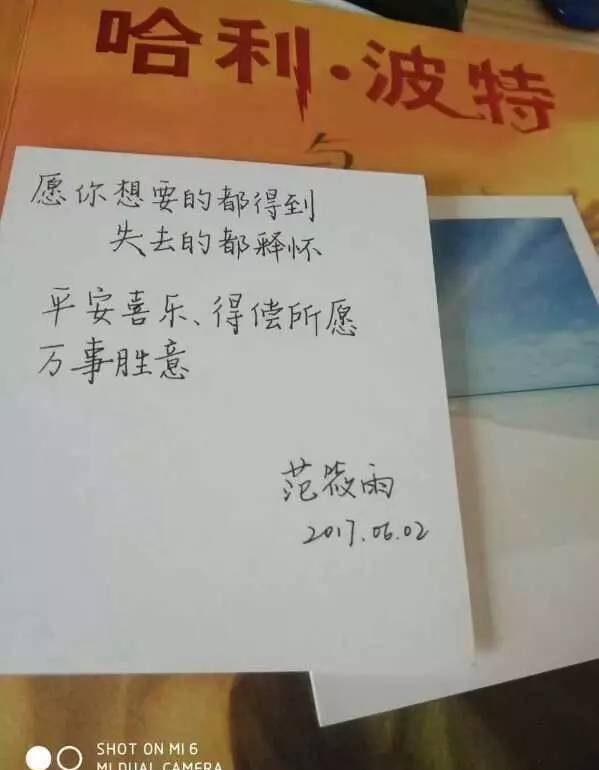 哈利·波特
与
愿你想要的都得到
失去的都释怀
平安喜乐、得偿所愿
万事胜意
范筱雨
2017.06.02
SHOT ON MI 6
MI DUAL CAMERA